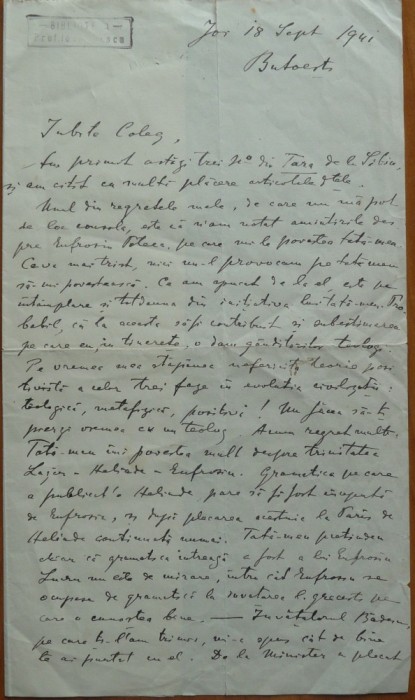 Joi 18 Sept 1941
Butoești
Iubite Coleg,
Am primit astăzi trei No din Țara de la Sibiu,
și am citit cu multă plăcere articolele d-tale.
Unul din regretele mele, de care nu mă pot
de loc consola, este că n'am notat amintirile des
pre Eufrosin Poteca, pe care mi le povestea tată-meu.
Ceva mai trist, nici nu-l provocam pe tată-meu
să-mi povestească. Ce am apucat de la el este pe
întâmplare și totdeauna din inițiativa lui tată-meu. Pro
babil, că la aceasta să fi contribuit și subestimarea
pe care eu, în tinerețe, o dam gânditorilor teologi.
Pe vremea mea stăpânea nefericita teorie pozi
tivistă a celor trei faze în evoluția civilizației:
teologică, metafizică, pozitivă! Nu făcea să-ți
pierzi vremea cu un teolog. Acum regret mult.
Tată-meu îmi povestea mult despre trinitatea
Lazăr - Heliade - Eufrosin. Gramatica pe care
a publicat'o Heliade pare să fi fost începută
de Eufrosin, și după plecarea acestuia la Paris de
Heliade continuată numai. Tată-meu pretindea
chiar că gramatica întreagă a fost a lui Eufrosin
Lucru nu este de mirare, întru cât Eufrosin se
ocupase de gramatică la învățarea l. grecești pe
care o cunoștea bine. — Învățătorul
pe care ți l'am trimes, mi-a spus cât de bine
te-ai purtat cu el. De la Minister a plecat